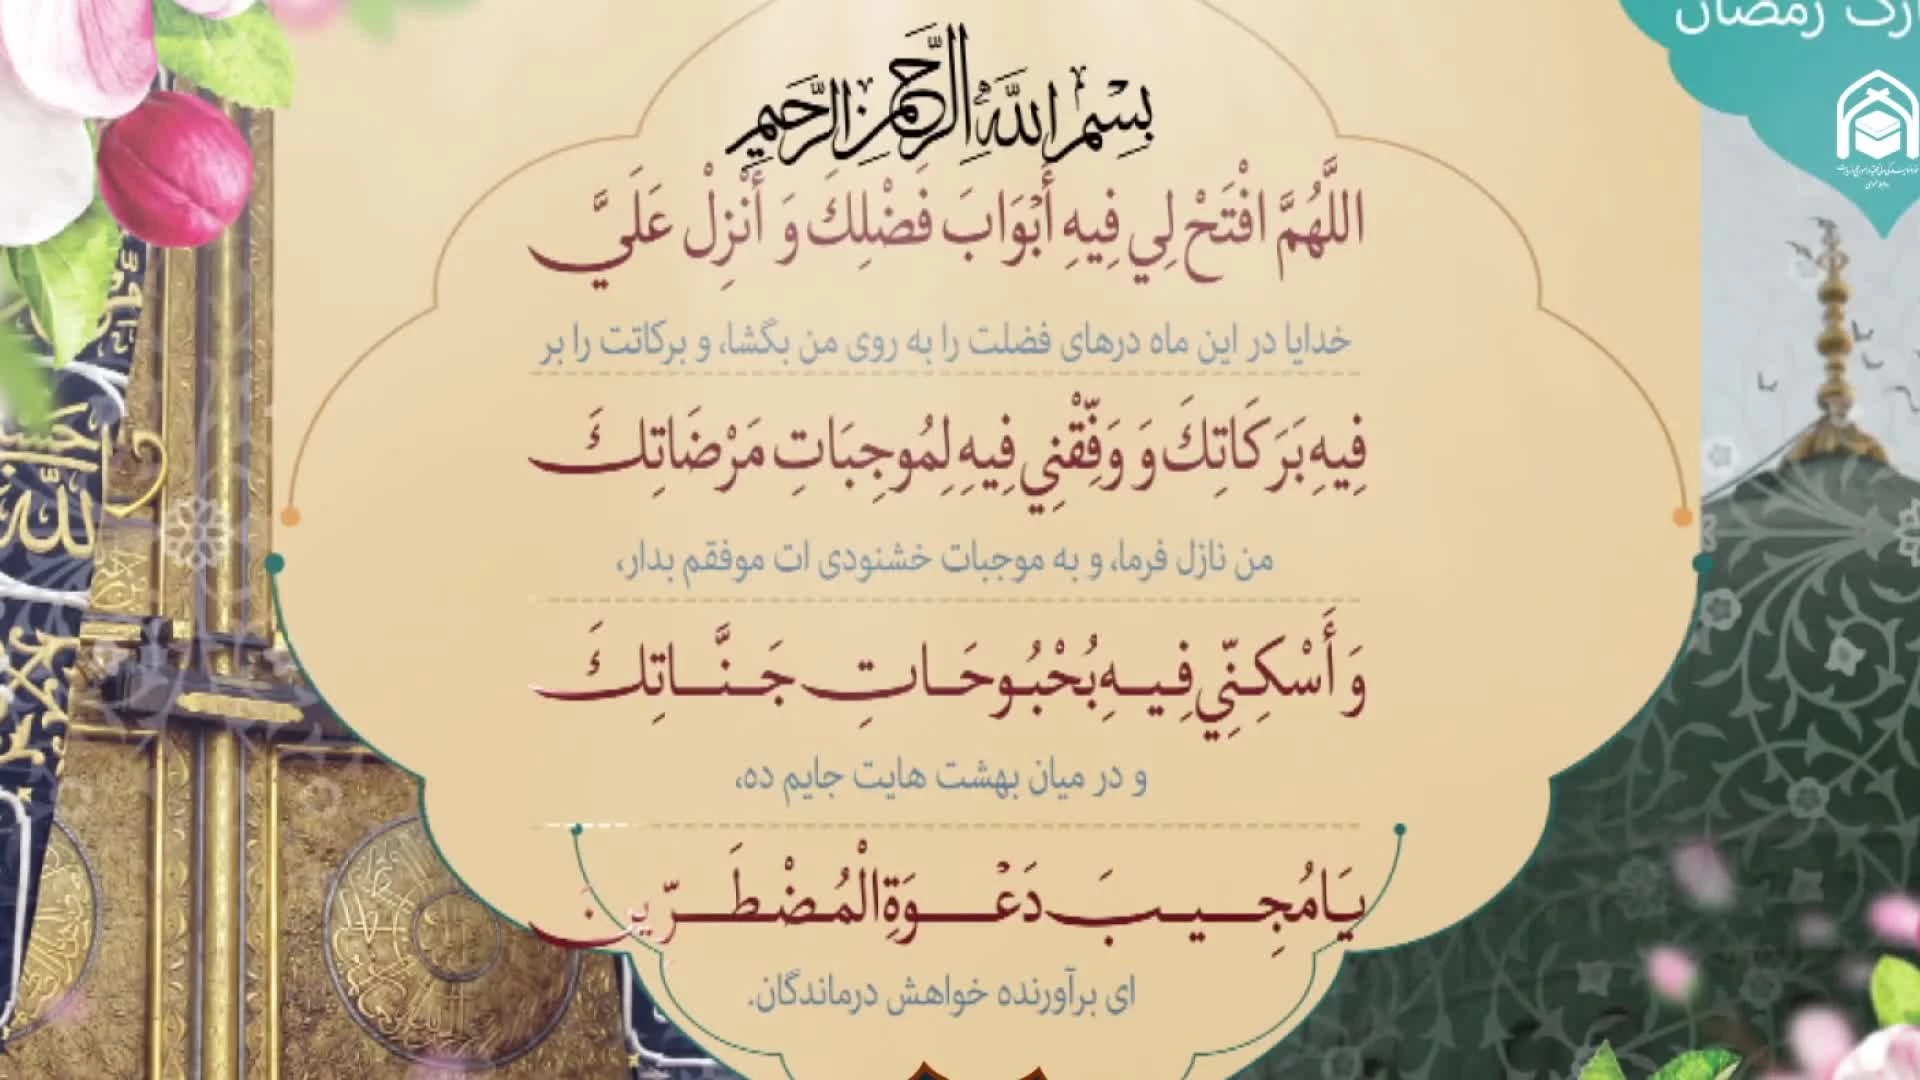 ارک رمضان
بِسْمِ اللَّهِ الرَّحْمنِ الرَّحِيمِ
اللَّهُمَّ افْتَحْ لِي فِيهِ أَبْوَابَ فَضْلِكَ وَ أَنْزِلْ عَلَيَّ
خدایا در این ماه درهای فضلت را به روی من بگشا، و برکاتت را بر
فِيهِ بَرَكَاتِكَ وَ وَفِّقْنِي فِيهِ لِمُوجِبَاتِ مَرْضَاتِكَ
من نازل فرما، و به موجبات خشنودی ات موفقم بدار،
وَ أَسْكِنِّي فِيهِ بُحْبُوحَاتِ جَنَّاتِكَ
و در میان بهشت هایت جایم ده،
يَا مُجِيبَ دَعْوَةِ الْمُضْطَرِّينَ
ای برآورنده خواهش درماندگان.